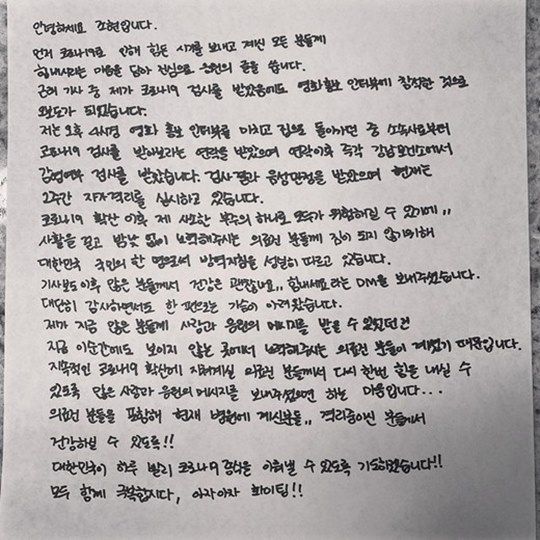 안녕하세요 조현입니다.
먼저 코로나19로 인해 힘든 시기를 보내고 계신 모든 분들께
힘내시라는 마음을 담아 진심으로 응원의 글을 씁니다.
근래 기사 중 제가 코로나19 검사를 받았음에도 영화홍보 인터뷰에 참석한 것으로
오보도가 되었습니다.
저는 오후 4시경 영화 홍보 인터뷰를 마치고 집으로 돌아가던 중 소속사로부터
코로나19 검사를 받아보라는 연락을 받았으며 연락이후 즉각 강남보건소에서
감염여부 검사를 받았습니다. 검사결과 음성판정을 받았으며 현재는
2주간 자가격리를 실시하고 있습니다.
코로나19 확산 이후 제 사소한 부주의 하나로 모두가 위험해질 수 있기에,,
사활을 걸고 밤낮 없이 노력해주시는 의료진 분들께 짐이 되지 않기위해
대한민국 국민의 한 명으로서 방역지침을 성실히 따르고 있습니다.
기사보도 이후 많은 분들께서 건강은 괜찮냐요,, 힘내세요라는 DM을 보내주셨습니다.
대단히 감사하면서도 한 편으로는 가슴이 아려왔습니다.
제가 지금 많은 분들께 사랑과 응원의 메시지를 받을 수 있었던건
지금 이순간에도 보이지 않는 곳에서 노력해주시는 의료진 분들이 계셨기 때문입니다.
지속적인 코로나19 확산에 지쳐계실 의료진 분들께서 다시 한번 힘을 내실 수
있도록 많은 사랑과 응원의 메시지를 보내주셨으면 하는 마음입니다...
의료진 분들을 포함해 현재 병원에 계신분들,, 격리중이신 분들께서
건강하실 수 있도록!!
대한민국이 하루 빨리 코로나19 종식을 이뤄낼 수 있도록 기도하겠습니다!!
모두 함께 극복합시다, 아자아자 화이팅!!